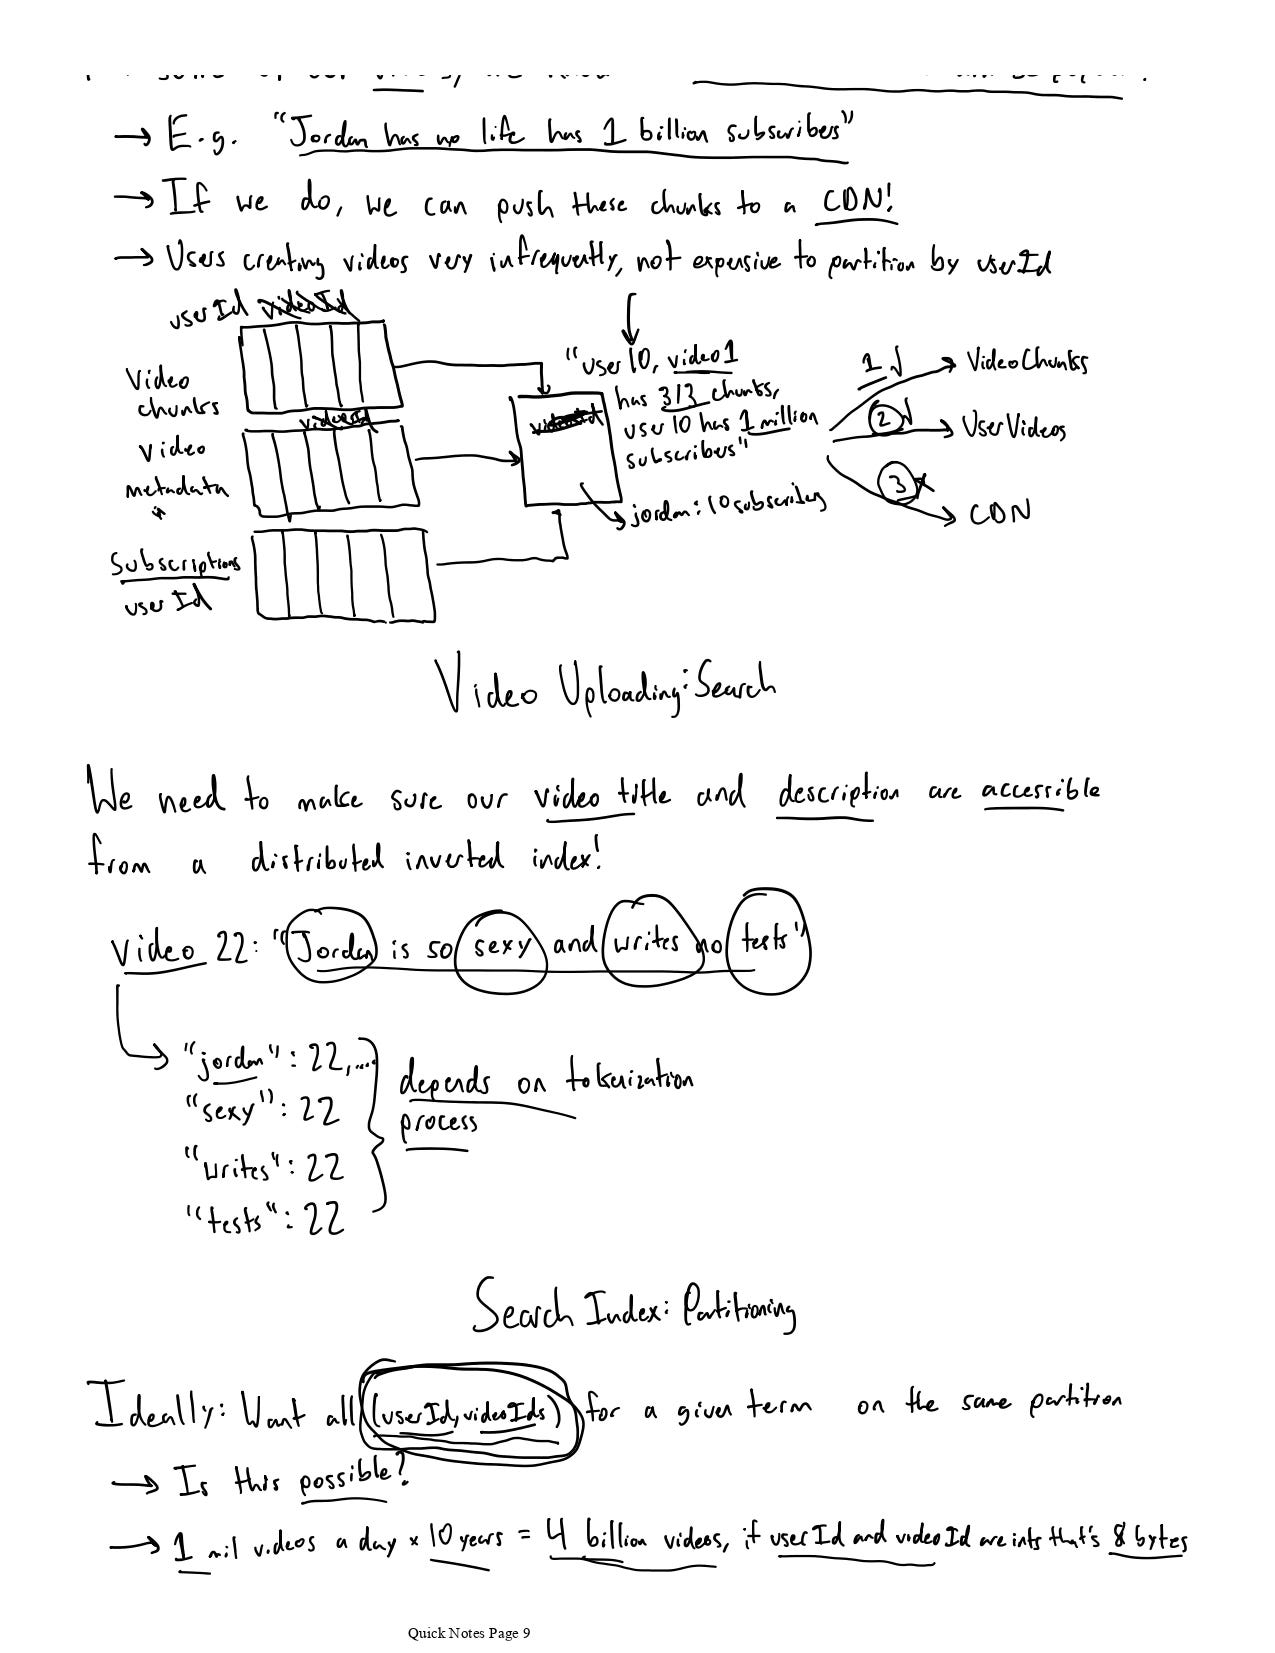 → E.g. "Jordan has no life has 1 billion subscribers"
→ If we do, we can push these chunks to a CDN!
→ Users creating videos very infrequently, not expensive to partition by userId
userId videoId
Video chunks
videoId
video metadata
Subscriptions
userId
videoId
"user 10, video 1
has 3/3 chunks,
user 10 has 1 million
subscribers"
jordan: 10 subscribers
1 ✓ VideoChunks
2 ✓ UserVideos
3 x CDN
Video Uploading: Search
We need to make sure our video title and description are accessible
from a distributed inverted index!
video 22: "Jordan is so sexy and writes no tests"
"jordan": 22,...
"sexy": 22
"writes": 22
"tests": 22
depends on tokenization
process
Search Index: Partitioning
Ideally: Want all (userId, videoIds) for a given term on the same partition
→ Is this possible?
→ 1 mil videos a day × 10 years = 4 billion videos, if userId and videoId are ints that's 8 bytes
Quick Notes Page 9